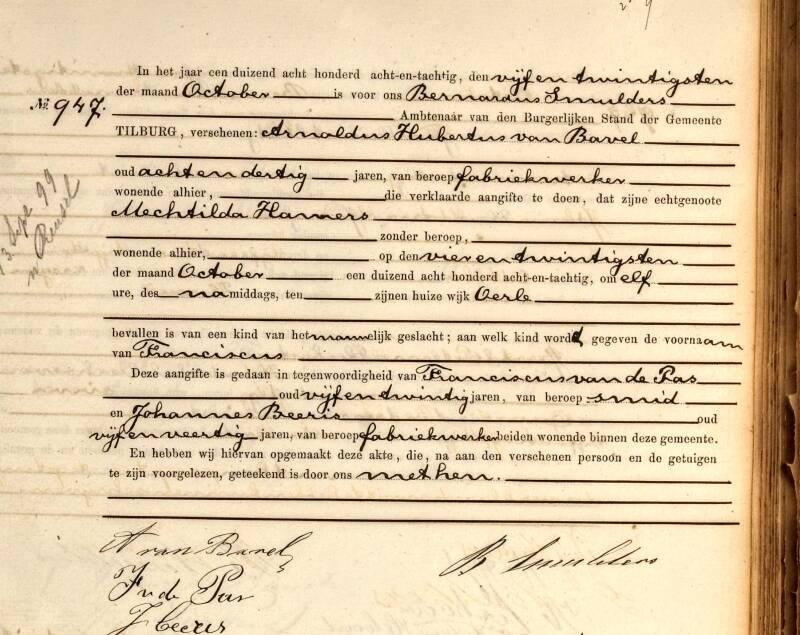 In het jaar een duizend acht honderd acht-en-tachtig, den vijf en twintigsten
der maand October is voor ons Bernardus Smulders
No. 947.
Ambtenaar van den Burgerlijken Stand der Gemeente
TILBURG, verschenen: Arnoldus Hubertus van Bavel
oud acht en dertig jaren, van beroep fabriekwerker
wonende alhier, die verklaarde aangifte te doen, dat zijne echtgenoote
Mechtilda Hamers
zonder beroep,
wonende alhier, op den vier en twintigsten
der maand October een duizend acht honderd acht-en-tachtig, om elf
ure, des namiddags, ten zijnen huize wijk Oerle
bevallen is van een kind van het mannelijk geslacht; aan welk kind wordt gegeven de voornaam
van Franciscus
Deze aangifte is gedaan in tegenwoordigheid van Franciscus van de Pas
oud vijf en twintig jaren, van beroep smid
en Johannes Beeris oud
vijf en veertig jaren, van beroep fabriekwerker beiden wonende binnen deze gemeente.
En hebben wij hiervan opgemaakt deze akte, die, na aan den verschenen persoon en de getuigen
te zijn voorgelezen, geteekend is door ons met hen.
A van Bavel
B Smulders
F v de Pas
J Beeris
13 Sept 99
n Reusel